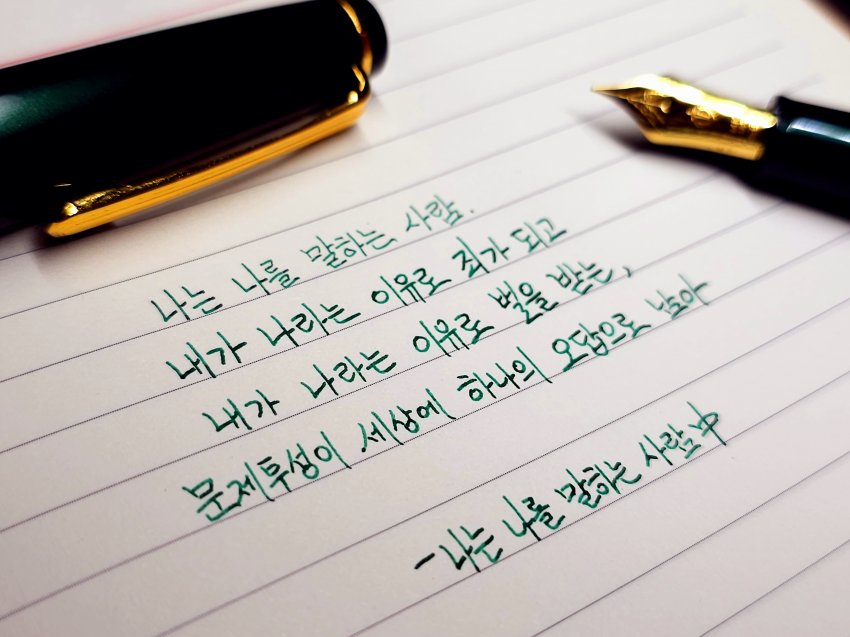 나는 나를 말하는 사람.
내가 나라는 이유로 죄가 되고
내가 나라는 이유로 벌을 받는,
문제투성이 세상에 하나의 오답으로 남아
- 나는 나를 말하는 사람 中